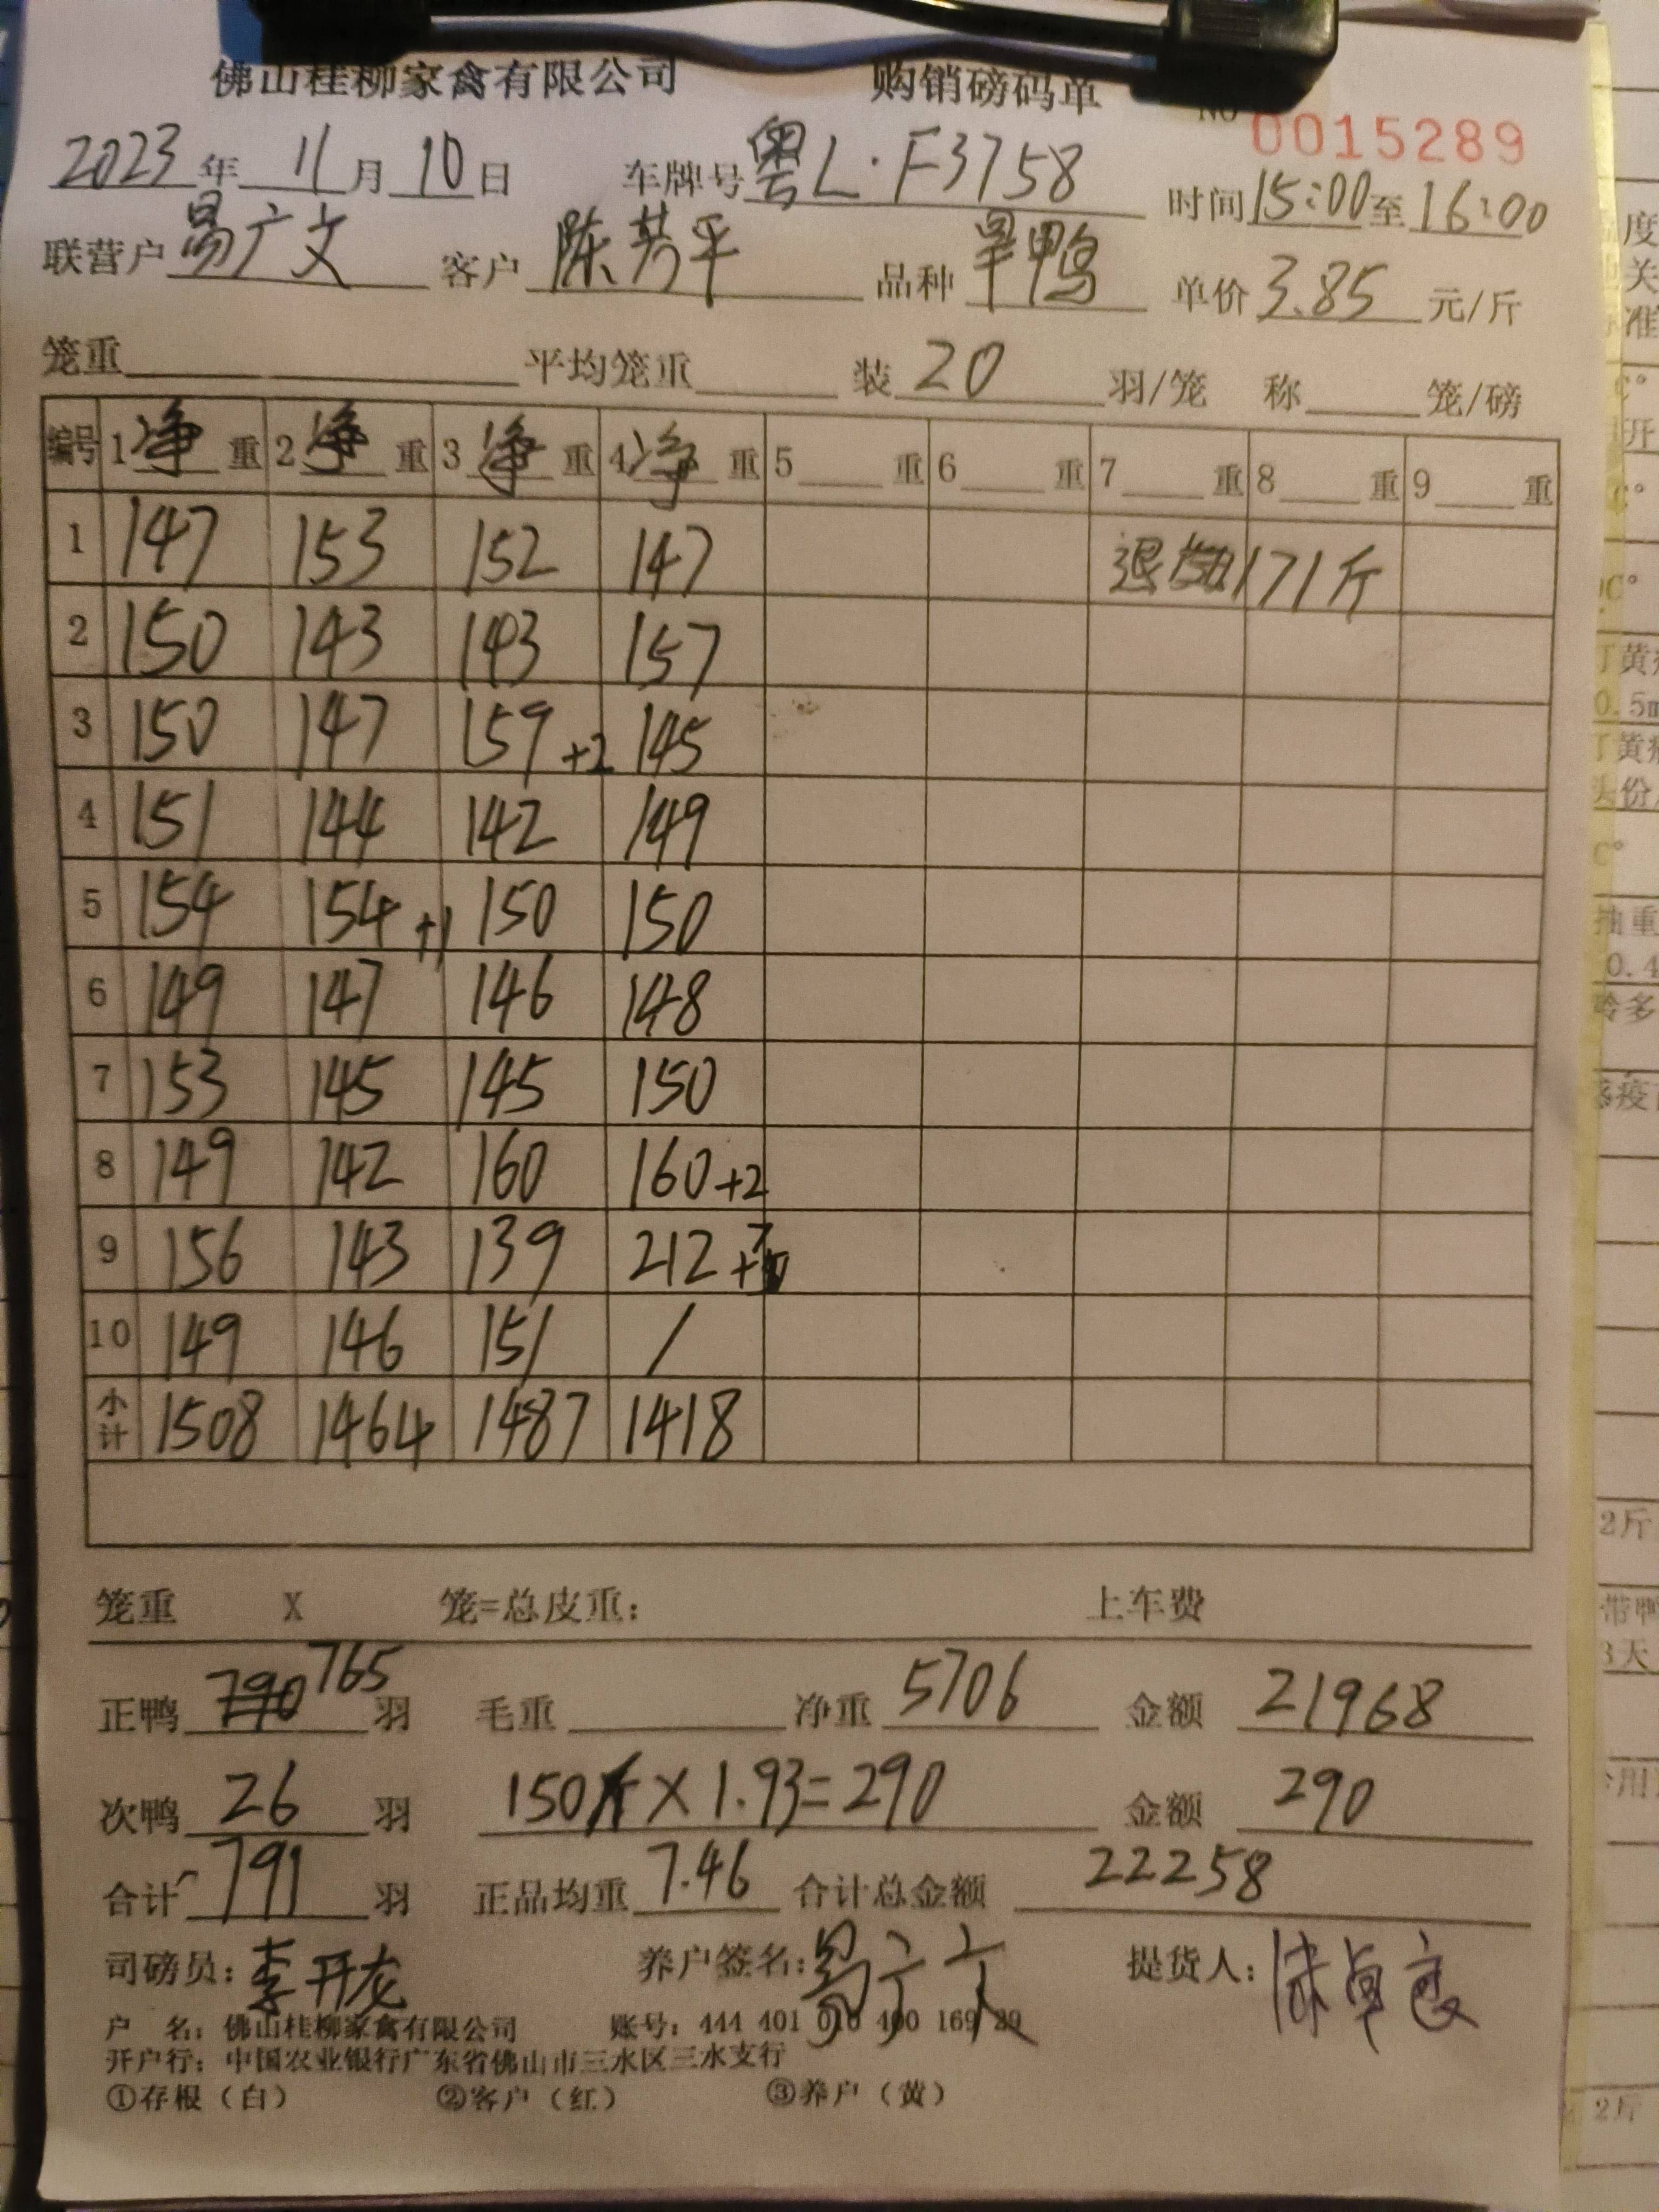 佛山桂柳家禽有限公司 购销磅码单 NO 0015289
2023年 11月 10日 车牌号 粤L·F3758 时间 15:00 至 16:00
联营户 易广文 客户 陈芳平 品种 旱鸭 单价 3.85 元/斤
笼重 平均笼重 装 20 羽/笼 称 笼/磅
编号 1 净 重 2 净 重 3 净 重 4 净 重 5 重 6 重 7 重 8 重 9 重
1 147 153 152 147 退 171斤
2 150 143 143 157
3 150 147 159 +2 145
4 151 144 142 149
5 154 154 +1 150 150
6 149 147 146 148
7 153 145 145 150
8 149 142 160 160 +2
9 156 143 139 212 +7
10 149 146 151 /
小计 1508 1464 1487 1418
笼重 X 笼=总皮重: 上车费
正鸭 790 765 羽 毛重 净重 5706 金额 21968
次鸭 26 羽 150斤×1.93=290 金额 290
合计 791 羽 正品均重 7.46 合计总金额 22258
司磅员: 李开龙 养户签名: 易广文 提货人:
户 名: 佛山桂柳家禽有限公司 账号: 444 401 010 400 169
开户行: 中国农业银行广东省佛山市三水区三水支行
①存根(白) ②客户(红) ③养户(黄)